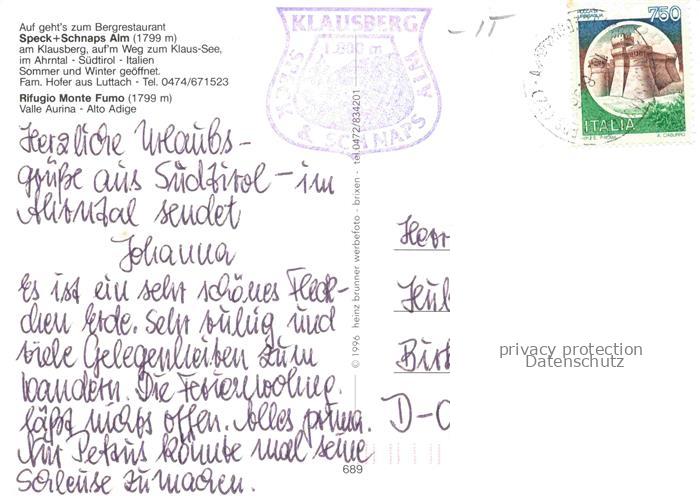 Auf geht's zum Bergrestaurant
Speck+Schnaps Alm (1799 m)
am Klausberg, auf'm Weg zum Klaus-See,
im Ahrntal - Südtirol - Italien
Sommer und Winter geöffnet.
Fam. Hofer aus Luttach - Tel. 0474/671523
Rifugio Monte Fumo (1799 m)
Valle Aurina - Alto Adige
KLAUSBERG
1.800 m
SPECK & SCHNAPS ALM
750
ITALIA
Herzliche Urlaubs-
grüße aus Südtirol - im
Ahrntal sendet
Johanna
Es ist ein sehr schönes Fleck-
chen Erde. Sehr ruhig und
viele Gelegenheiten zum
wandern. Die Ferienwohng.
läßt nichts offen. Alles prima.
Nur Petrus könnte mal seine
Schleuse zumachen.
© 1996 heinz brunner werbefoto - brixen - tel.0472/834201
689
Herr
D-
privacy protection
Datenschutz